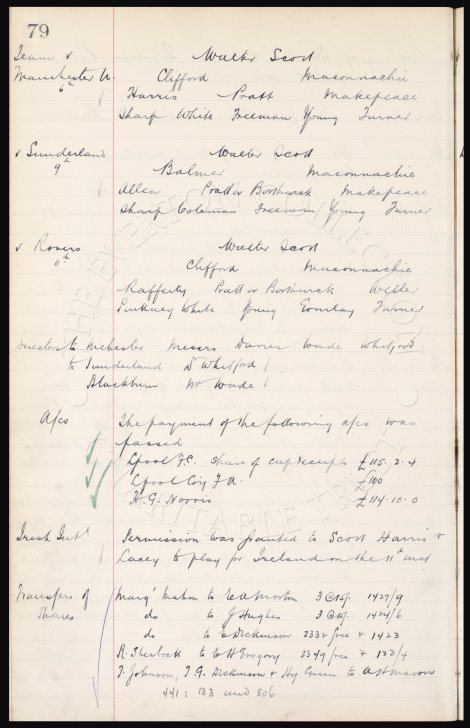 79
Team v Walter Scott
Manchester U. Clifford Maconnachie
6th Harris Pratt Makepeace
Sharp White Freeman Young Turner
v Sunderland Walter Scott
9th Balmer Maconnachie
Allen Pratt or Borthwick Makepeace
Sharp Coleman Freeman Young Turner
v Rovers Walter Scott
11th Clifford Maconnachie
Rafferty Pratt or Borthwick Weller
Pinkney White Young Gourlay Turner
Directors to Mchester Messrs Davies Wade Whitford
to Sunderland D Whitford
Blackburn Mr Wade
A/cs The payment of the following a/cs was
passed
Lpool F.C. Share of cup receipts £115. 2. 4
Lpool Coy F.A. £100
H. G. Norris £114. 10. 0
Irish Intl Permission was granted to Scott Harris &
Lacey to play for Ireland on the 11th inst
Transfers of Margt Mahon to E A Morton 3 @ 15/. 1427/9
Shares do to J Hughes 3 @ 15/. 1424/6
do to E Dickinson 2332 free & 1423
R. Sherlock to E H Gregory 2349 free & 133/4
T. Johnson, T. G. Dickinson & Hy Green to A H Mason
441 : 133 and 806
THE EVERTON COLLECTION CHARITABLE TRUST